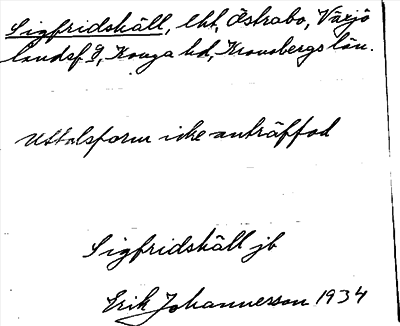 Sigfridskäll, lht, Östrabo, Växjö
landsf 9, Konga hd, Kronobergs län.
Uttalsform icke anträffad
Sigfridskäll jb
Erik Johannesson 1934